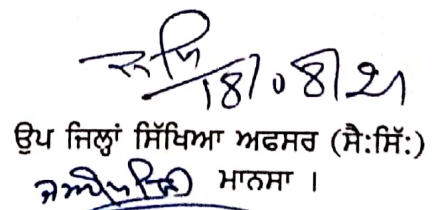 18/08/21
ਉਪ ਜਿਲ੍ਹਾਂ ਸਿੱਖਿਆ ਅਫਸਰ (ਸੈ:ਸਿੱ:)
ਮਾਨਸਾ ।